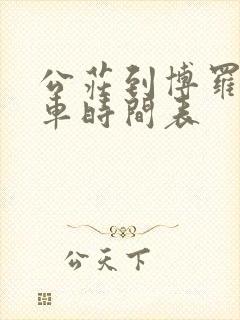 公莊到博羅
車時間表
公天下